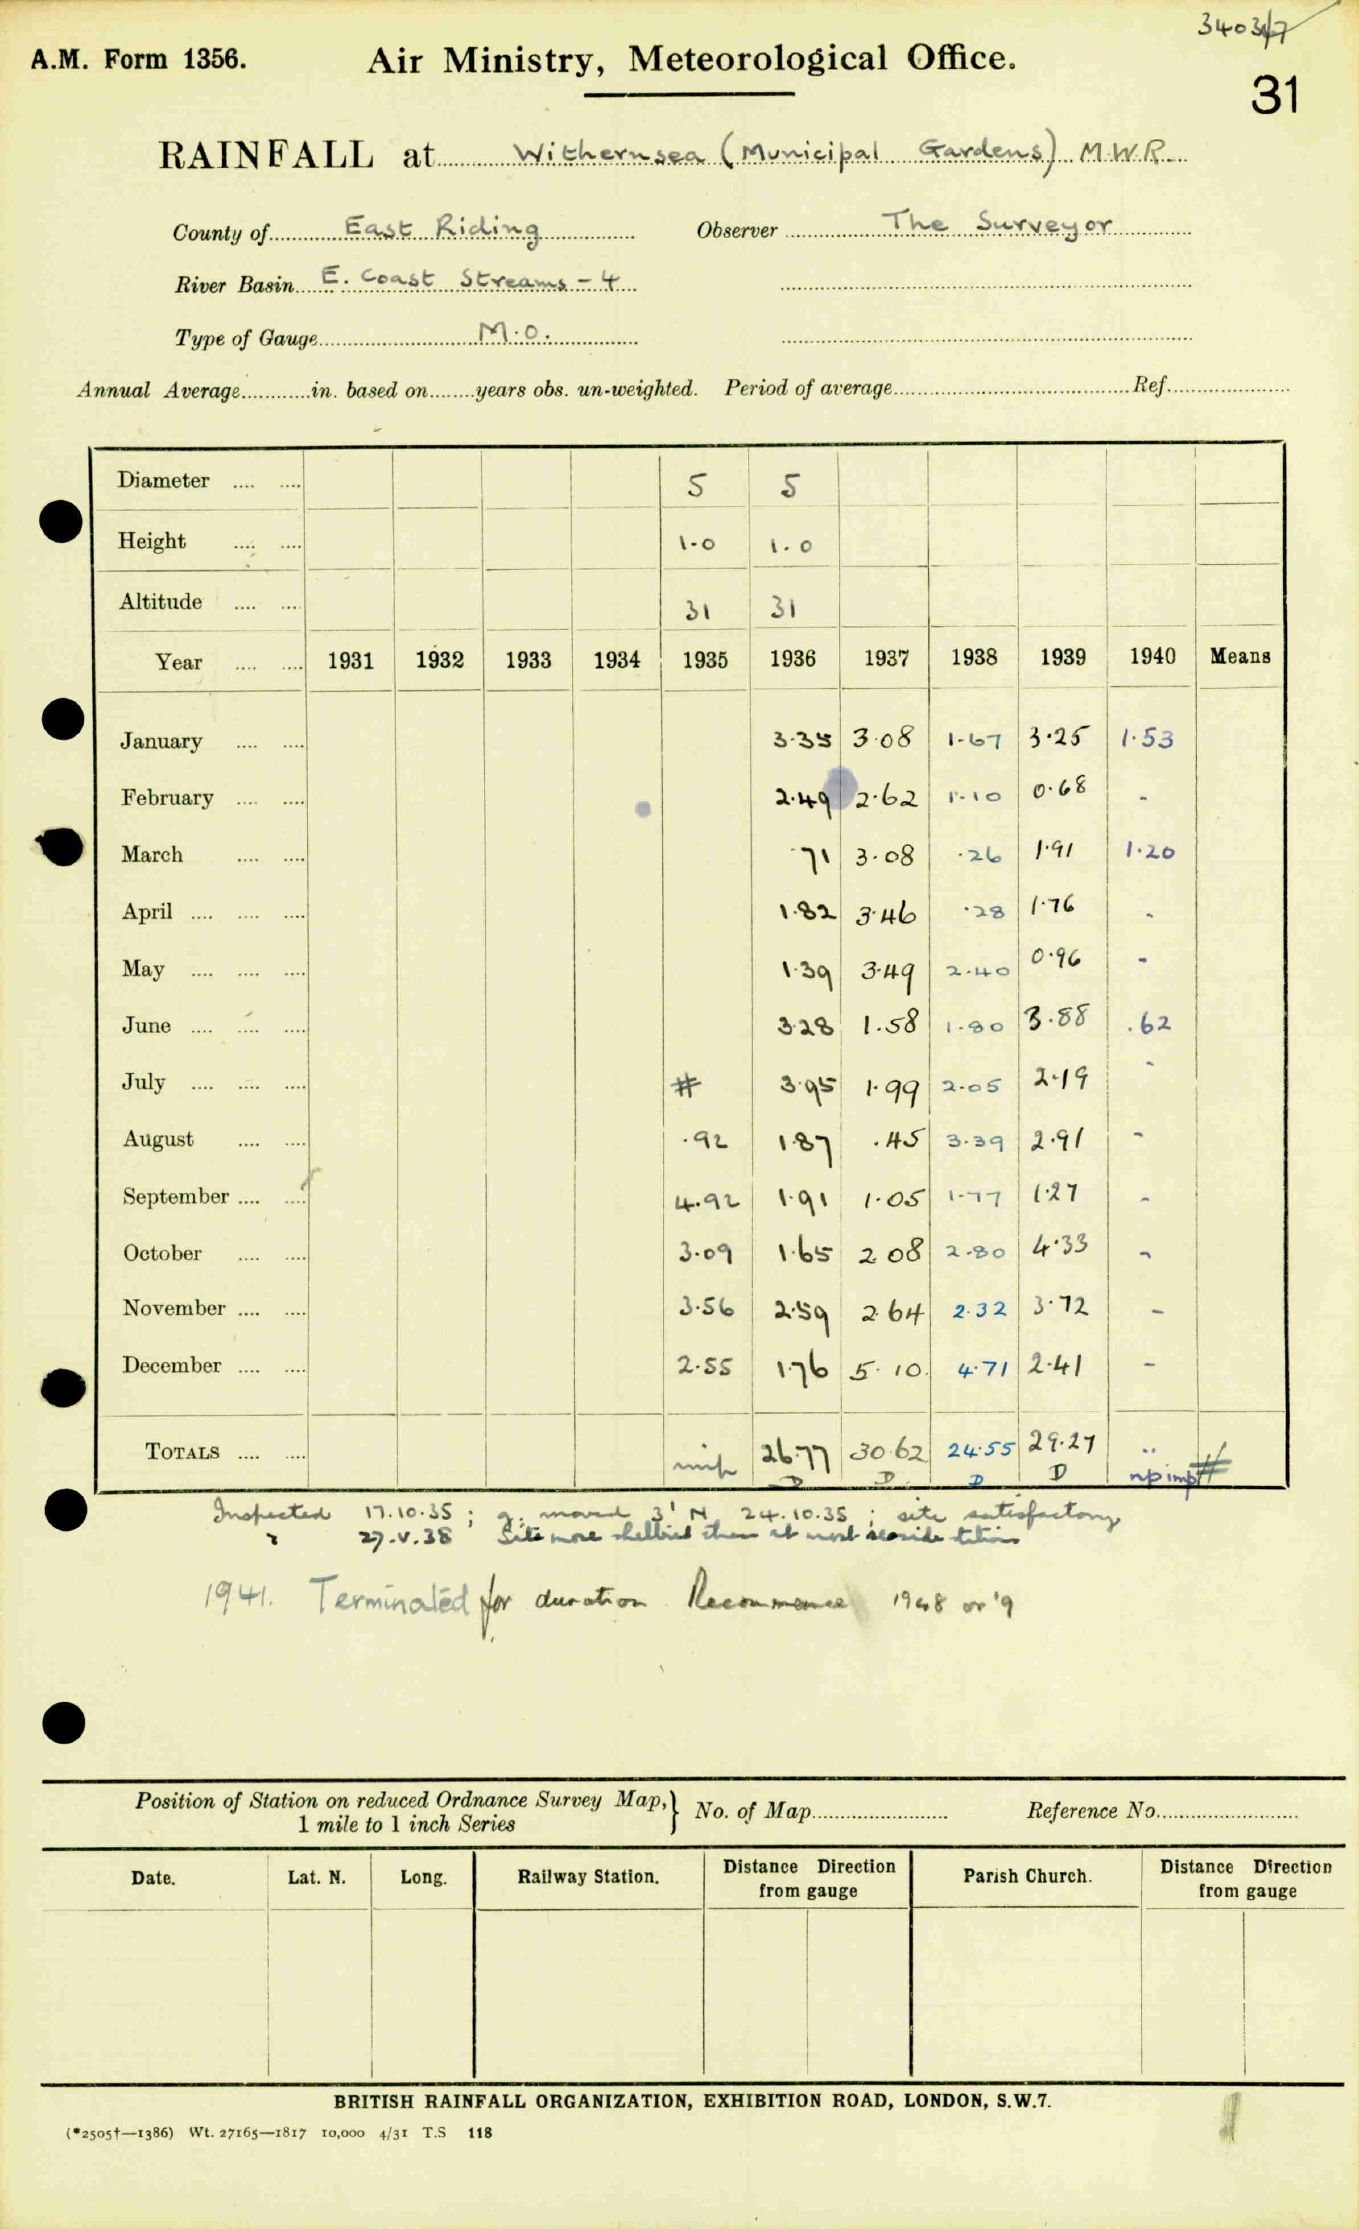 3403/7
A.M. Form 1356. Air Ministry, Meteorological Office.
31
RAINFALL at Withernsea (Municipal Gardens) M.W.R.
County of East Riding Observer The Surveyor
River Basin E. Coast Streams - 4
Type of Gauge M.O.
Annual Average in. based on years obs. un-weighted. Period of average Ref.
Diameter 5 5
Height 1.0 1.0
Altitude 31 31
Year 1931 1932 1933 1934 1935 1936 1937 1938 1939 1940 Means
January 3.35 3.08 1.67 3.25 1.53
February 2.49 2.62 1.10 0.68 -
March .71 3.08 .26 1.91 1.20
April 1.82 3.46 .28 1.76 -
May 1.39 3.49 2.40 0.96 -
June 3.28 1.58 1.80 3.88 .62
July # 3.95 1.99 2.05 2.19 -
August .92 1.87 .45 3.39 2.91 -
September 4.92 1.91 1.05 1.77 1.27 -
October 3.09 1.65 2.08 2.80 4.33 -
November 3.56 2.59 2.64 2.32 3.72 -
December 2.55 1.76 5.10 4.71 2.41 -
TOTALS imp 26.77 30.62 24.55 29.27 ..
D D D D np imp #
Inspected 17.10.35; g. moved 3' N 24.10.35; site satisfactory
" 27.V.38 Site more sheltered than at most seaside stations
1941. Terminated for duration. Recommence 1948 or '9
Position of Station on reduced Ordnance Survey Map, } No. of Map Reference No.
1 mile to 1 inch Series
Date. Lat. N. Long. Railway Station. Distance Direction from gauge Parish Church. Distance Direction from gauge
BRITISH RAINFALL ORGANIZATION, EXHIBITION ROAD, LONDON, S.W.7.
(*2505†—1386) Wt. 27165—1817 10,000 4/31 T.S 118